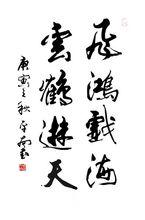 飛鴻戲海
雲鶴遊天
庚寅之秋